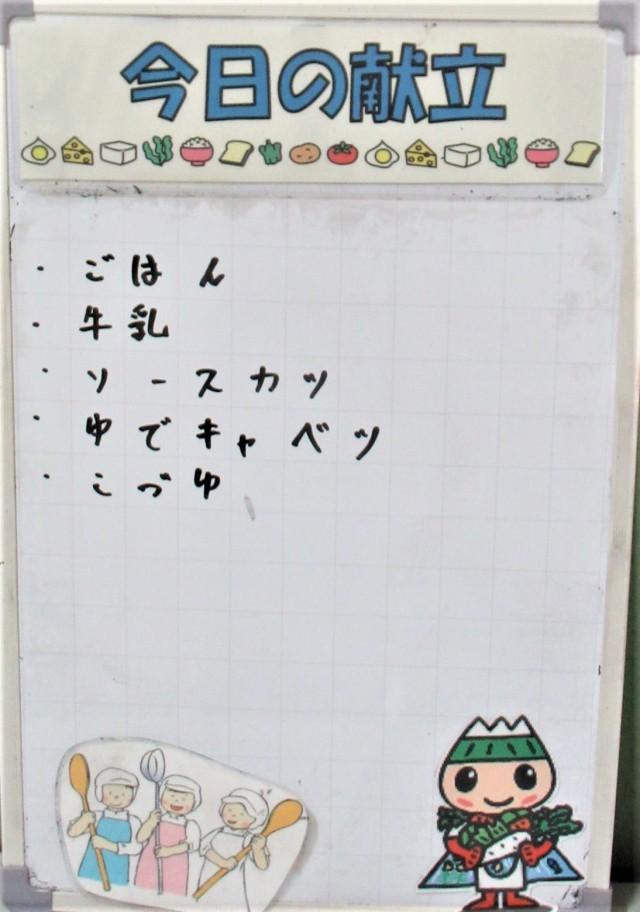 今日の献立
・ごはん
・牛乳
・ソースカツ
・ゆでキャベツ
・こづゆ